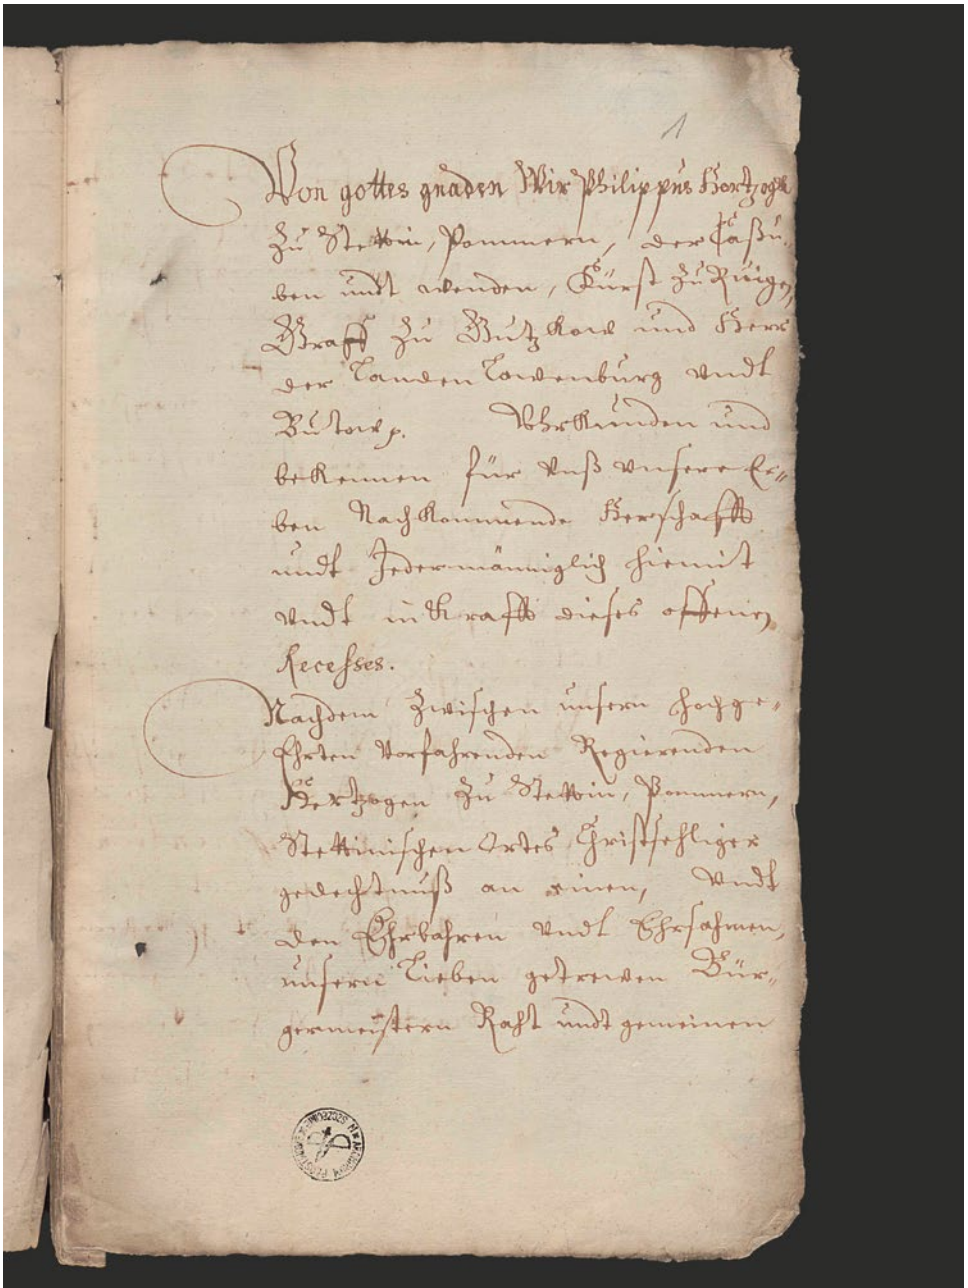 1
Von gottes gnaden Wir Philippus Hertzogk
Zu Stettin, Pommern, der Caßu-
ben undt wenden, Fürst Zu Rügen,
Graff Zu Gutzkow und Herr
der Landen Lowenburg vndt
Butow p. Vhrkunden und
bekennen für vnß vnsere Er-
ben Nachkommende Herschafft
undt Jedermänniglich hiemit
vndt in Krafft dieses offenen
Recesses.
Nachdem Zwischen unsern hochge-
Ehrten Vorfahrenden Regierenden
Hertzogen Zu Stettin, Pommern,
Stettinischen Ortes Christsehliger
gedechtnuß an einen, Vndt
den Ehrbahren vndt Ehrsahmen,
unsern Lieben getrewen Bür-
germeistern Raht undt gemeinen